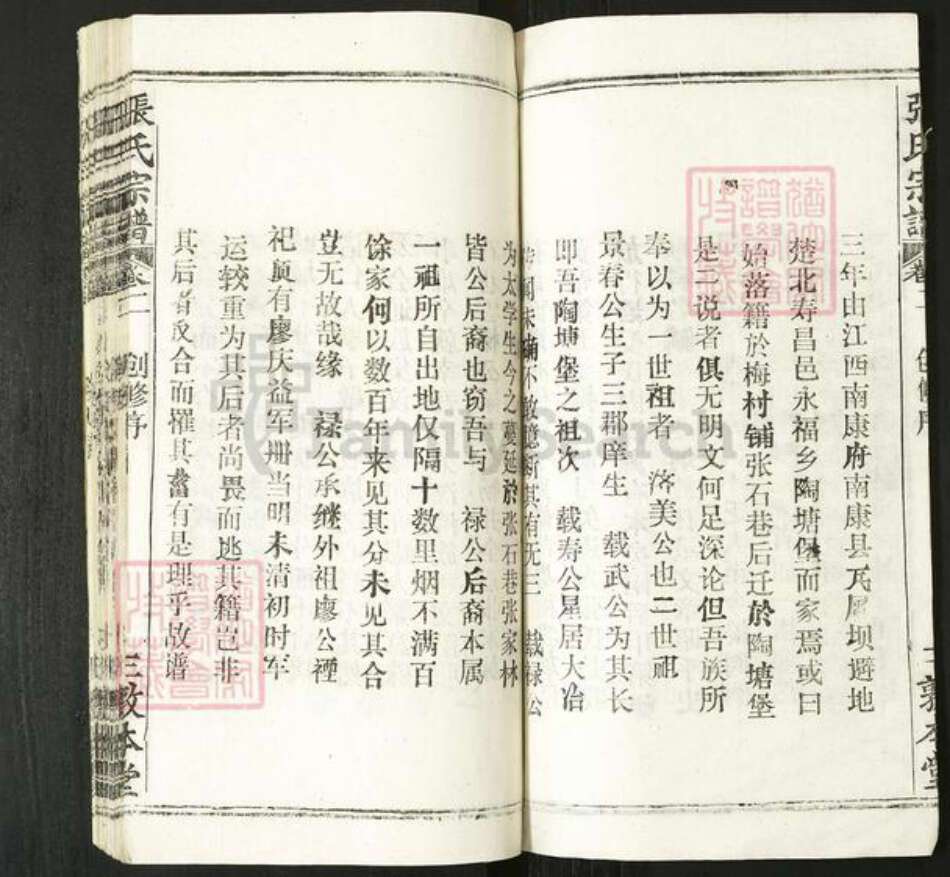 張氏宗譜
卷二
三年由江西南康府南康县瓦屋坝避地
楚北寿昌邑永福乡陶塘堡而家焉或曰
始落籍於梅村铺张石巷后迁於陶塘堡
是二说者俱无明文何足深论但吾族所
奉以为一世祖者 落美公也二世祖
景春公生子三郡庠生 载武公为其长
即吾陶塘堡之祖次 载寿公星居大冶
未确不敢臆断其有无三 载禄公
为太学生今之蔓延於张石巷张家林
皆公后裔也窃吾与 禄公后裔本属
一祖所自出地仅隔十数里烟不满百
馀家何以数百年来见其分未见其合
岂无故哉缘 禄公承继外祖廖公禋
祀顶有廖庆益军册当明末清初时军
运较重为其后者尚畏而逃其籍岂非
其后者反合而罹其灾有是理乎故谱
張氏宗譜
卷二
创修序
三敦本堂
FamilySearch